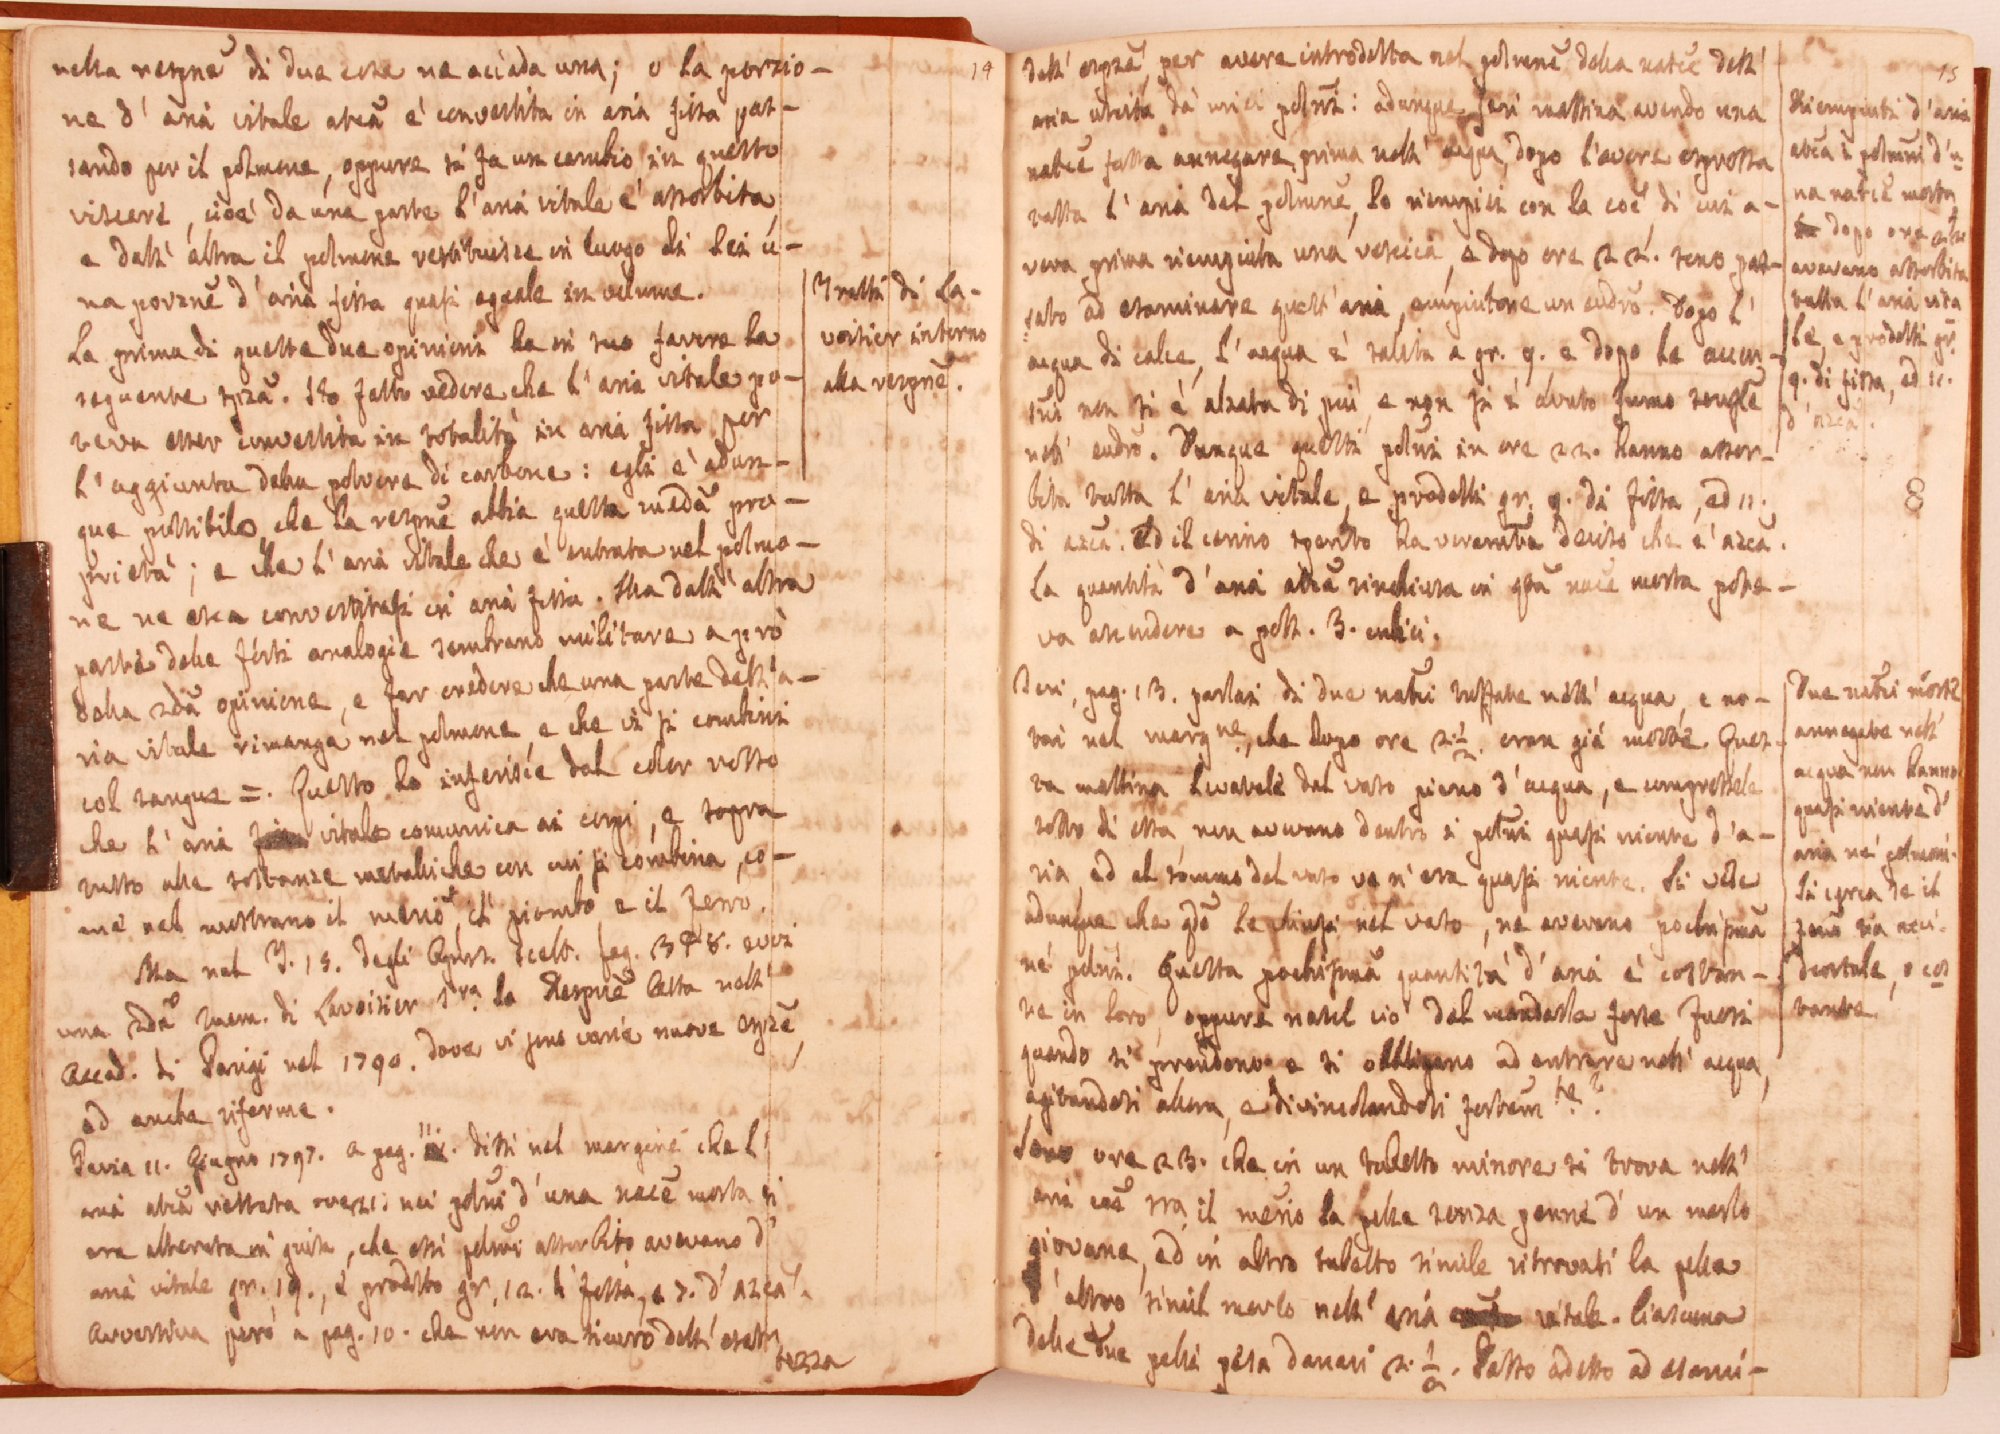 14
nella respne di due cose ne accada una; o la porzio-
ne d' aria vitale atca è convertita in aria fissa pas-
sando per il polmone, oppure si fa un cambio in questo
viscere, cioè da una parte l' aria vitale è assorbita,
e dall' altra il polmone restituisce in luogo di lei u-
na porzne d' aria fissa quasi eguale in volume.
La prima di queste due opinioni ha in suo favore la
seguente spza. Ho fatto vedere che l' aria vitale po-
teva esser convertita in totalità in aria fissa per
l' aggiunta della polvere di carbone: egli è adun-
que possibile che la respne abbia questa meda pro-
prietà; e che l' aria vitale che è entrata nel polmo-
ne ne esca convertitasi in aria fissa. Ma dall' altra
parte delle forti analogie sembrano militare a prò
della 2da opinione, e far credere che una parte dell' a-
ria vitale rimanga nel polmone e che vi si combini
col sangue =. Questo lo inferisce dal color rosso
che l' aria vitale comunica ai corpi, e sopra
tutto alle sostanze metalliche con cui si combina, co-
me nel mostrano il mercio, il piombo e il ferro.
Ma nel T. 15. degli Opusc. Scelt. pag. 378. evvi
una 2da Mem. di Lavoisier sra la Respne letta nell'
Accad. di Parigi nel 1790. dove vi sono varie nuove espze,
ed anche riforme.
Pavia 11. Giugno 1797. A pag. 11. dissi nel margine che l'
aria atca restata nei polmi d' una natce morta si
era alterata in guisa, che essi polmi assorbito avevano d'
aria vitale gr. 19., e prodotto gr. 12. di fissa, e 7. d' azca.
Avvertiva però a pag. 10. che non era sicuro dell' esat-
tezza
Tratti di La-
voisier intorno
alla respne.
15
dell' espze, per avere introdotta nel polmone della natce dell'
aria uscita da' miei polmi: adunque jeri mattina avendo una
natce fatta annegare prima nell' acqua, dopo l' avere espressa
tutta l' aria del polmone, lo riempiei con la coe di cui a-
veva prima riempiuta una vescica, e dopo ore 22. sono pas-
sato ad esaminare quest' aria, empiutone un eudro. Dopo l'
acqua di calce, l' acqua è salita a gr. 9. e dopo le accen-
sni non si è alzata di più, e non si è avuto fumo
nell' eudro. Dunque questi polmi in ore 22. hanno assor-
bita tutta l' aria vitale, e prodotti gr. 9. di fissa, ed 11.
di azca. Ed il cerino spento ha veramte deciso che è azca.
La quantità d' aria atca rinchiusa in qta natce morta pote-
va ascendere a poll. 3. cubici.
Jeri, pag. 13. parlai di due natci tuffate nell' acqua, e no-
tai nel margne, che dopo ore 2 1/2. eran già morte. Ques-
ta mattina levatele dal vaso pieno d' acqua, e compressele
sotto di essa, non avevano dentro i polmi quasi niente d' a-
ria, ed al sommo del vaso ve n' era quasi niente. Si vede
adunque che qdo le chiusi nel vaso, ne avevano pochissima
ne' polmi. Questa pochissima quantità d' aria è costan-
te in loro, oppure nasce ciò dal mandarla forse fuori
quando si prendono e si obbligano ad entrare nell' acqua,
agitandosi allora, e divincolandosi fortemte?
Sono ore 23. che in un tubetto minore si trova nell'
aria coe sra il mercio la pelle senza penne d' un merlo
giovane, ed in altro tubetto simile ritrovasi la pelle
d' altro simil merlo nell' aria vitale. Ciascuna
delle due pelli pesa danari 2. 1/2. Passo adesso ad esami-
Riempiuti d' aria
atca i polmoni d' u-
na natce morta
dopo ore
avevano assorbita
tutta l' aria vita
le, e prodotti gr.
9. di fissa, ed 11.
d' azca.
8
Due natci morte
annegate nell'
acqua non hanno
quasi niente d'
aria ne' polmoni.
Si cerca se il
feno sia acci-
dentale, o cos
tante.